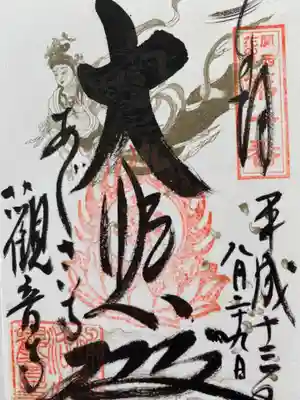 奉拝
平成十三年
八月二十九日
大悲殿
あじさゐ
觀音寺